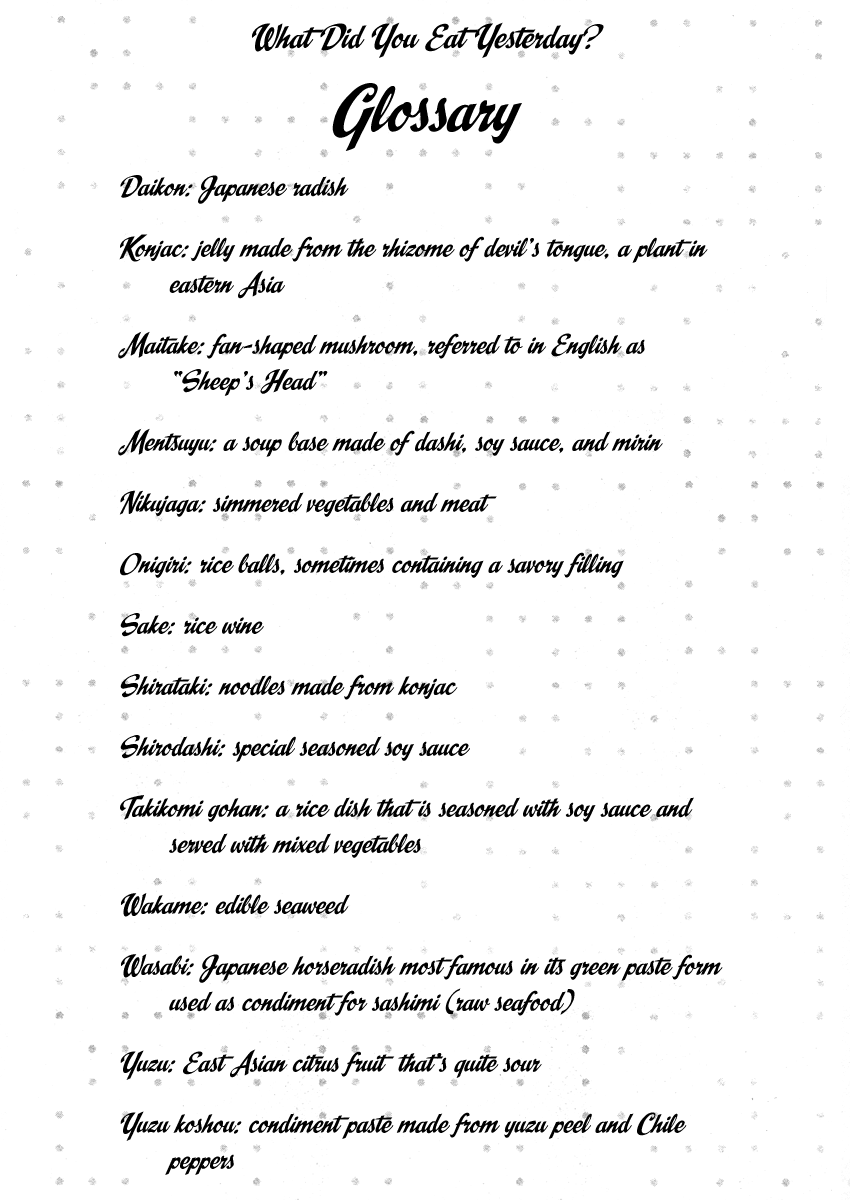 What Did You Eat Yesterday?
Glossary
Daikon: Japanese radish
Konjac: jelly made from the rhizome of devil's tongue, a plant in
eastern Asia
Maitake: fan-shaped mushroom, referred to in English as
"Sheep's Head"
Mentsuyu: a soup base made of dashi, soy sauce, and mirin
Nikujaga: simmered vegetables and meat
Onigiri: rice balls, sometimes containing a savory filling
Sake: rice wine
Shirataki: noodles made from konjac
Shirodashi: special seasoned soy sauce
Takikomi gohan: a rice dish that is seasoned with soy sauce and
served with mixed vegetables
Wakame: edible seaweed
Wasabi: Japanese horseradish most famous in its green paste form
used as condiment for sashimi (raw seafood)
Yuzu: East Asian citrus fruit that's quite sour
Yuzu koshou: condiment paste made from yuzu peel and Chile
peppers